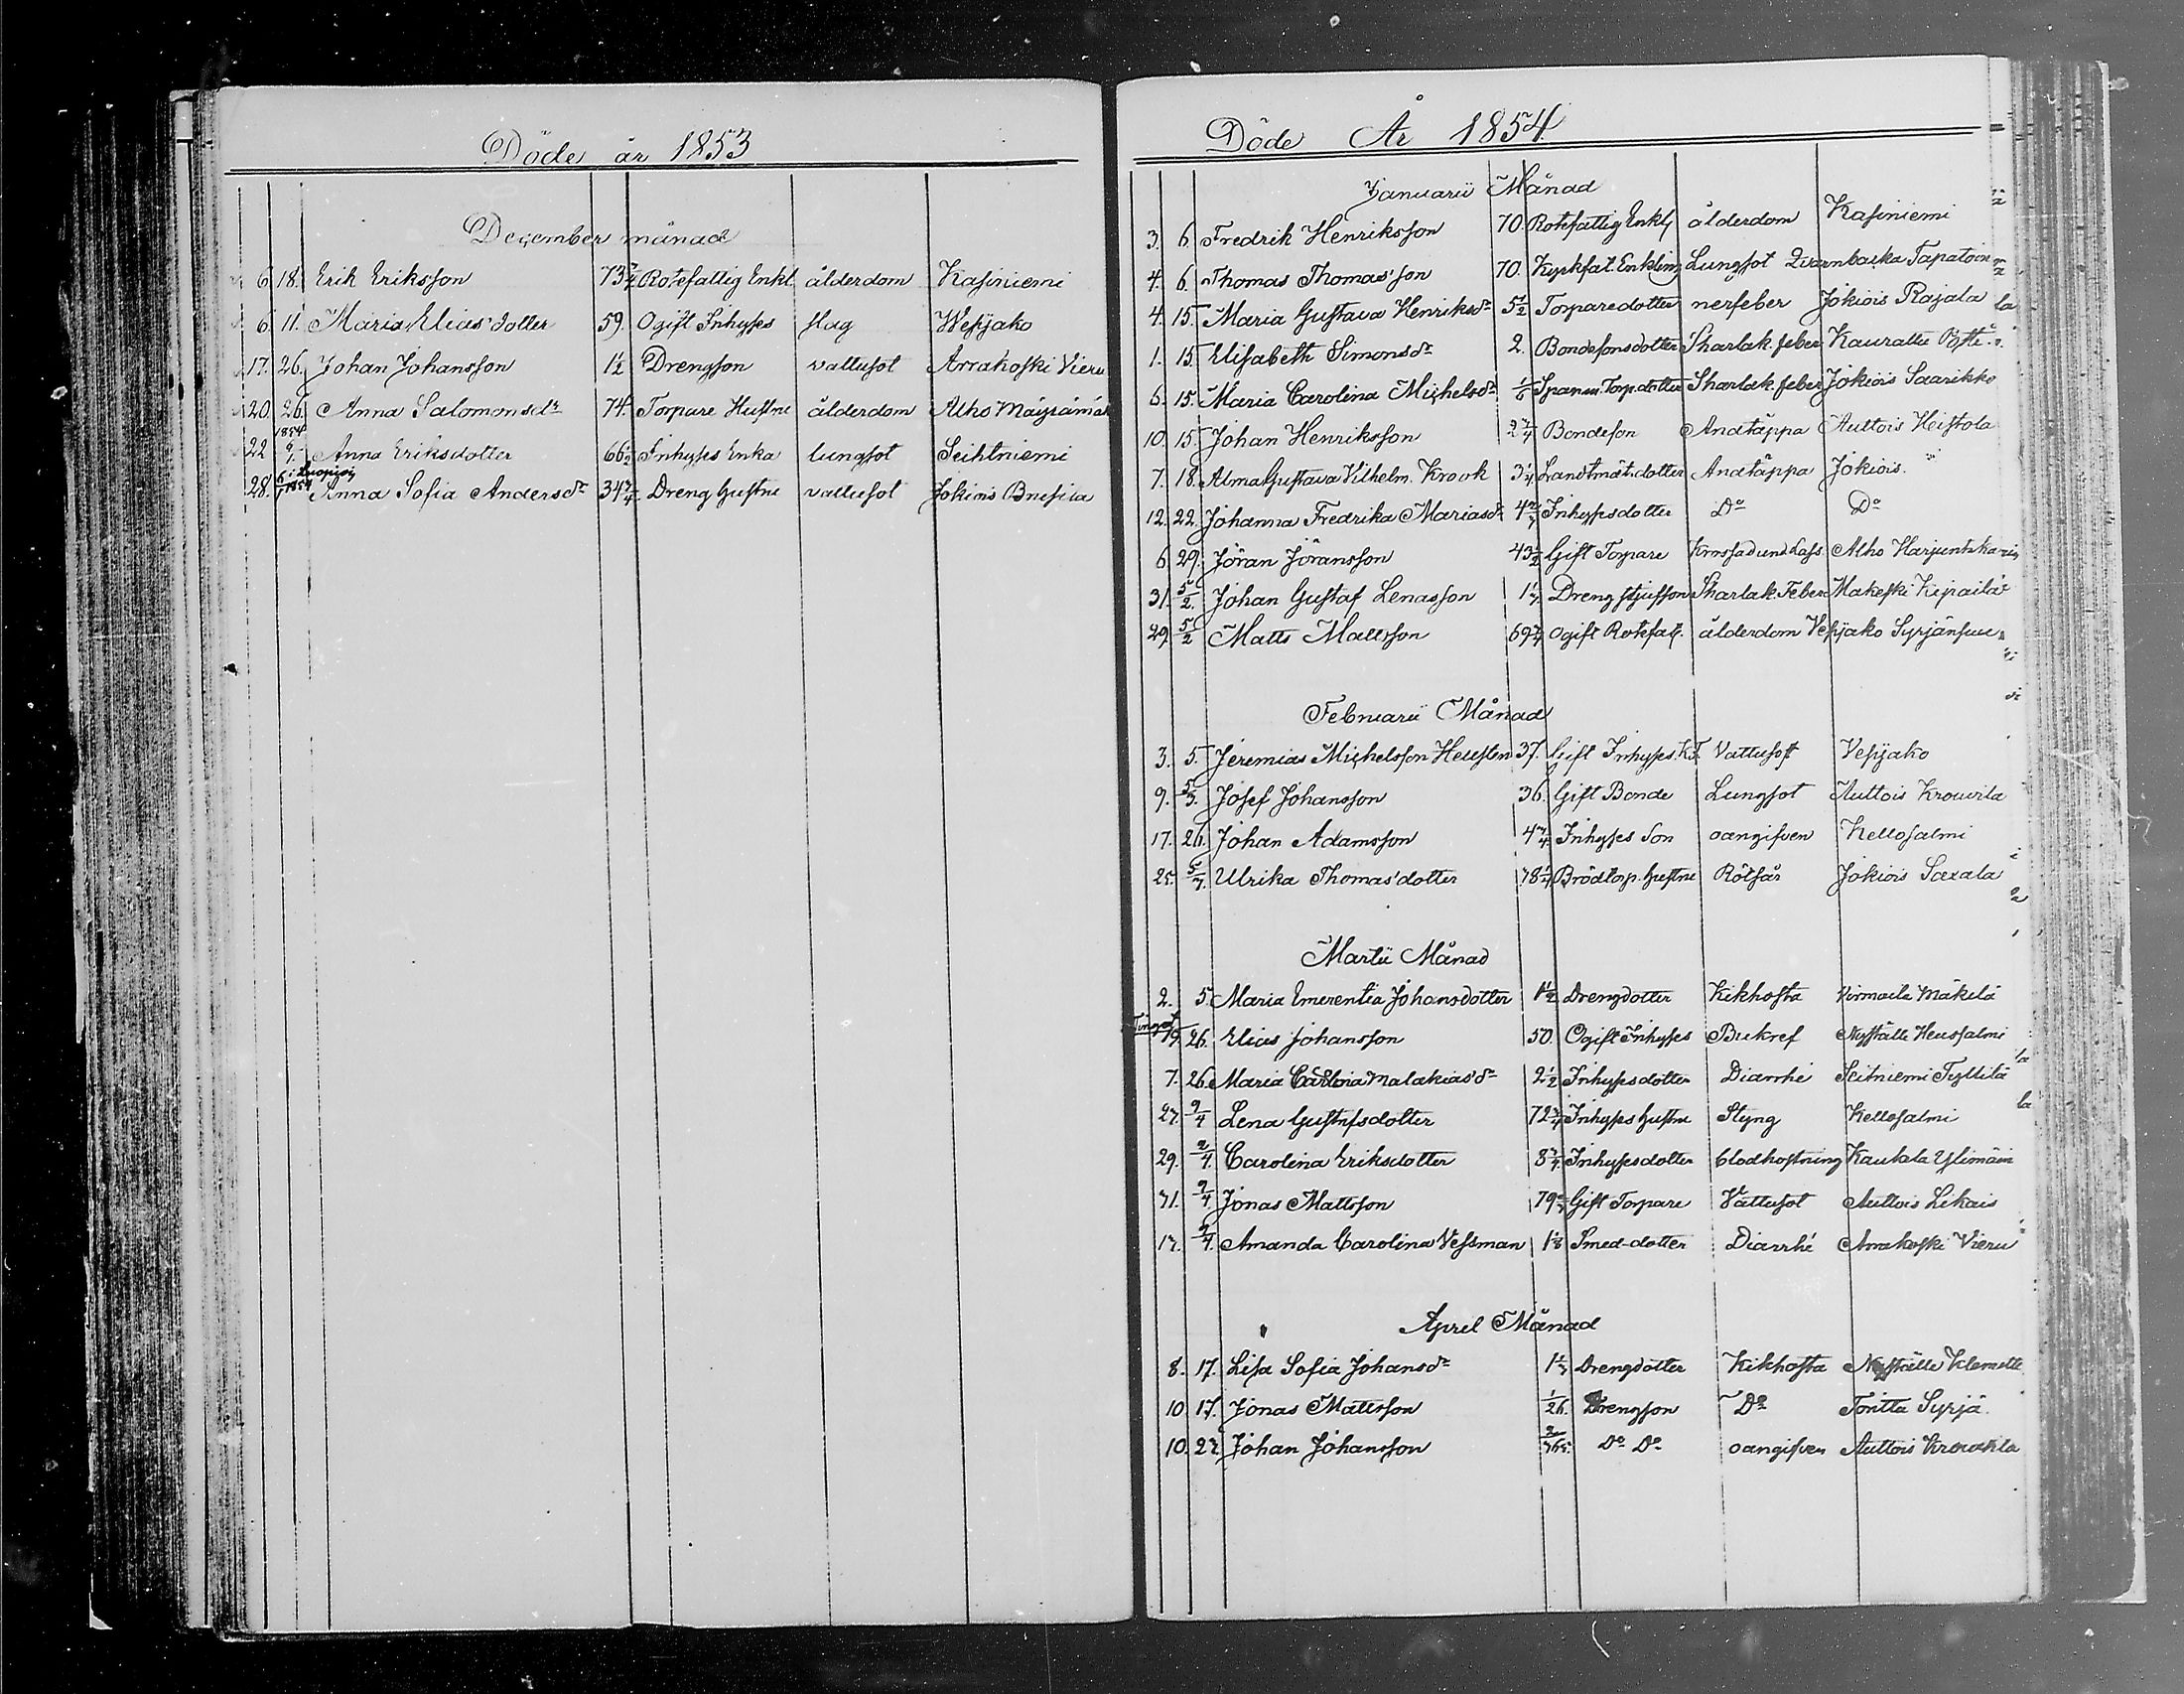 Döde år 1853
December månad
6 18. Erik Eriksson 73 3/4 Rotefattig Enkl. ålderdom Kasiniemi
6. 11. Maria Elias'dotter 59. Ogift Inhyses slag Wesijako
17. 26. Johan Johansson 1 1/2 Drengson vattusot Arrakoski Vieru
20. 26. Anna Salomonsdr 74. Torpare Hustru ålderdom Alho
22 1854 6/1. Anna Eriksdotter 66 1/2 Inhyses Enka lungsot Seihtniemi
28. 1854 Anna Sofia Andersdr 34 3/4 Dreng hustru vattusot Jokiois
Döde År 1854.
Januarii Månad
3. 6. Fredrik Henriksson 70. Rotefattig Enkl ålderdom Kasiniemi
4. 6. Thomas Thomas'son 70. Kyrkfat. Enkling Lungsot Qvarnbacka
4. 15. Maria Gustava Henriksdr 5 1/2 Torparedotter nerfeber Jokiois Rajala
1. 15. Elisabeth Simonsdr 2. Bondesonsdotter Skarlak. feber
6. 15. Maria Carolina Michelsdr 1/6 Torp. dotter Skarlak. feber Jokiois Saarikko
10. 15. Johan Henriksson Bondeson Andtäppa Auttois Heistola
7. 18. Alma Gustava Vilhelm. Krook 3 1/4 Landtmät. dotter Andtäppa Jokiois.
12. 22. Johanna Fredrika Mariasdr Inhysesdotter Do Do
6. 29. Jöran Jöransson 43 1/2 Gift Torpare Alho
31. 5/2. Johan Gustaf Lenasson Dreng Skarlak. Feber
29. 5/2 Matts Mattsson 69 3/4 Ogift Rotefat. ålderdom Vesijako
Februarii Månad
3. 5. Jeremias Michelsson 37. Gift Inhyses. Vattusot Vesijako
9. 5/3. Josef Johansson 36. Gift Bonde Lungsot Auttois
17. 26. Johan Adamsson 4 3/4. Inhyses Son oangifven Kellosalmi
25. Ulrika Thomas'dotter hustru Rötsår Jokiois Saxala
Martii Månad
2. 5. Maria Emerentia Johansdotter 1 1/2 Drengdotter Kikhosta Virmaila Mäkelä
19. 26. Elias Johansson 50. Ogift Inhyses Bukref
7. 26. Maria Malakias'dr 2 1/2 Inhysesdotter Diarrhé Seitniemi
27. 9/4 Lena Gustafsdotter 72 3/4 Inhyses hustru Styng Kellosalmi
29. 9/4. Carolina Eriksdotter 8 3/4 Inhysesdotter blodhostning
31. 9/4. Jonas Mattsson Gift Torpare Vattusot Auttois
17. 9/4. Amanda Carolina Vessman Smed-dotter Diarrhé Arrakoski Vieru
April Månad
8. 17. Lisa Sofia Johansdr Drengdotter Kikhosta
10. 17. Jonas Mattsson 1/26. Drengson Do Toritta Syrjä.
10. 27. Johan Johansson Do Do oangifven Auttois